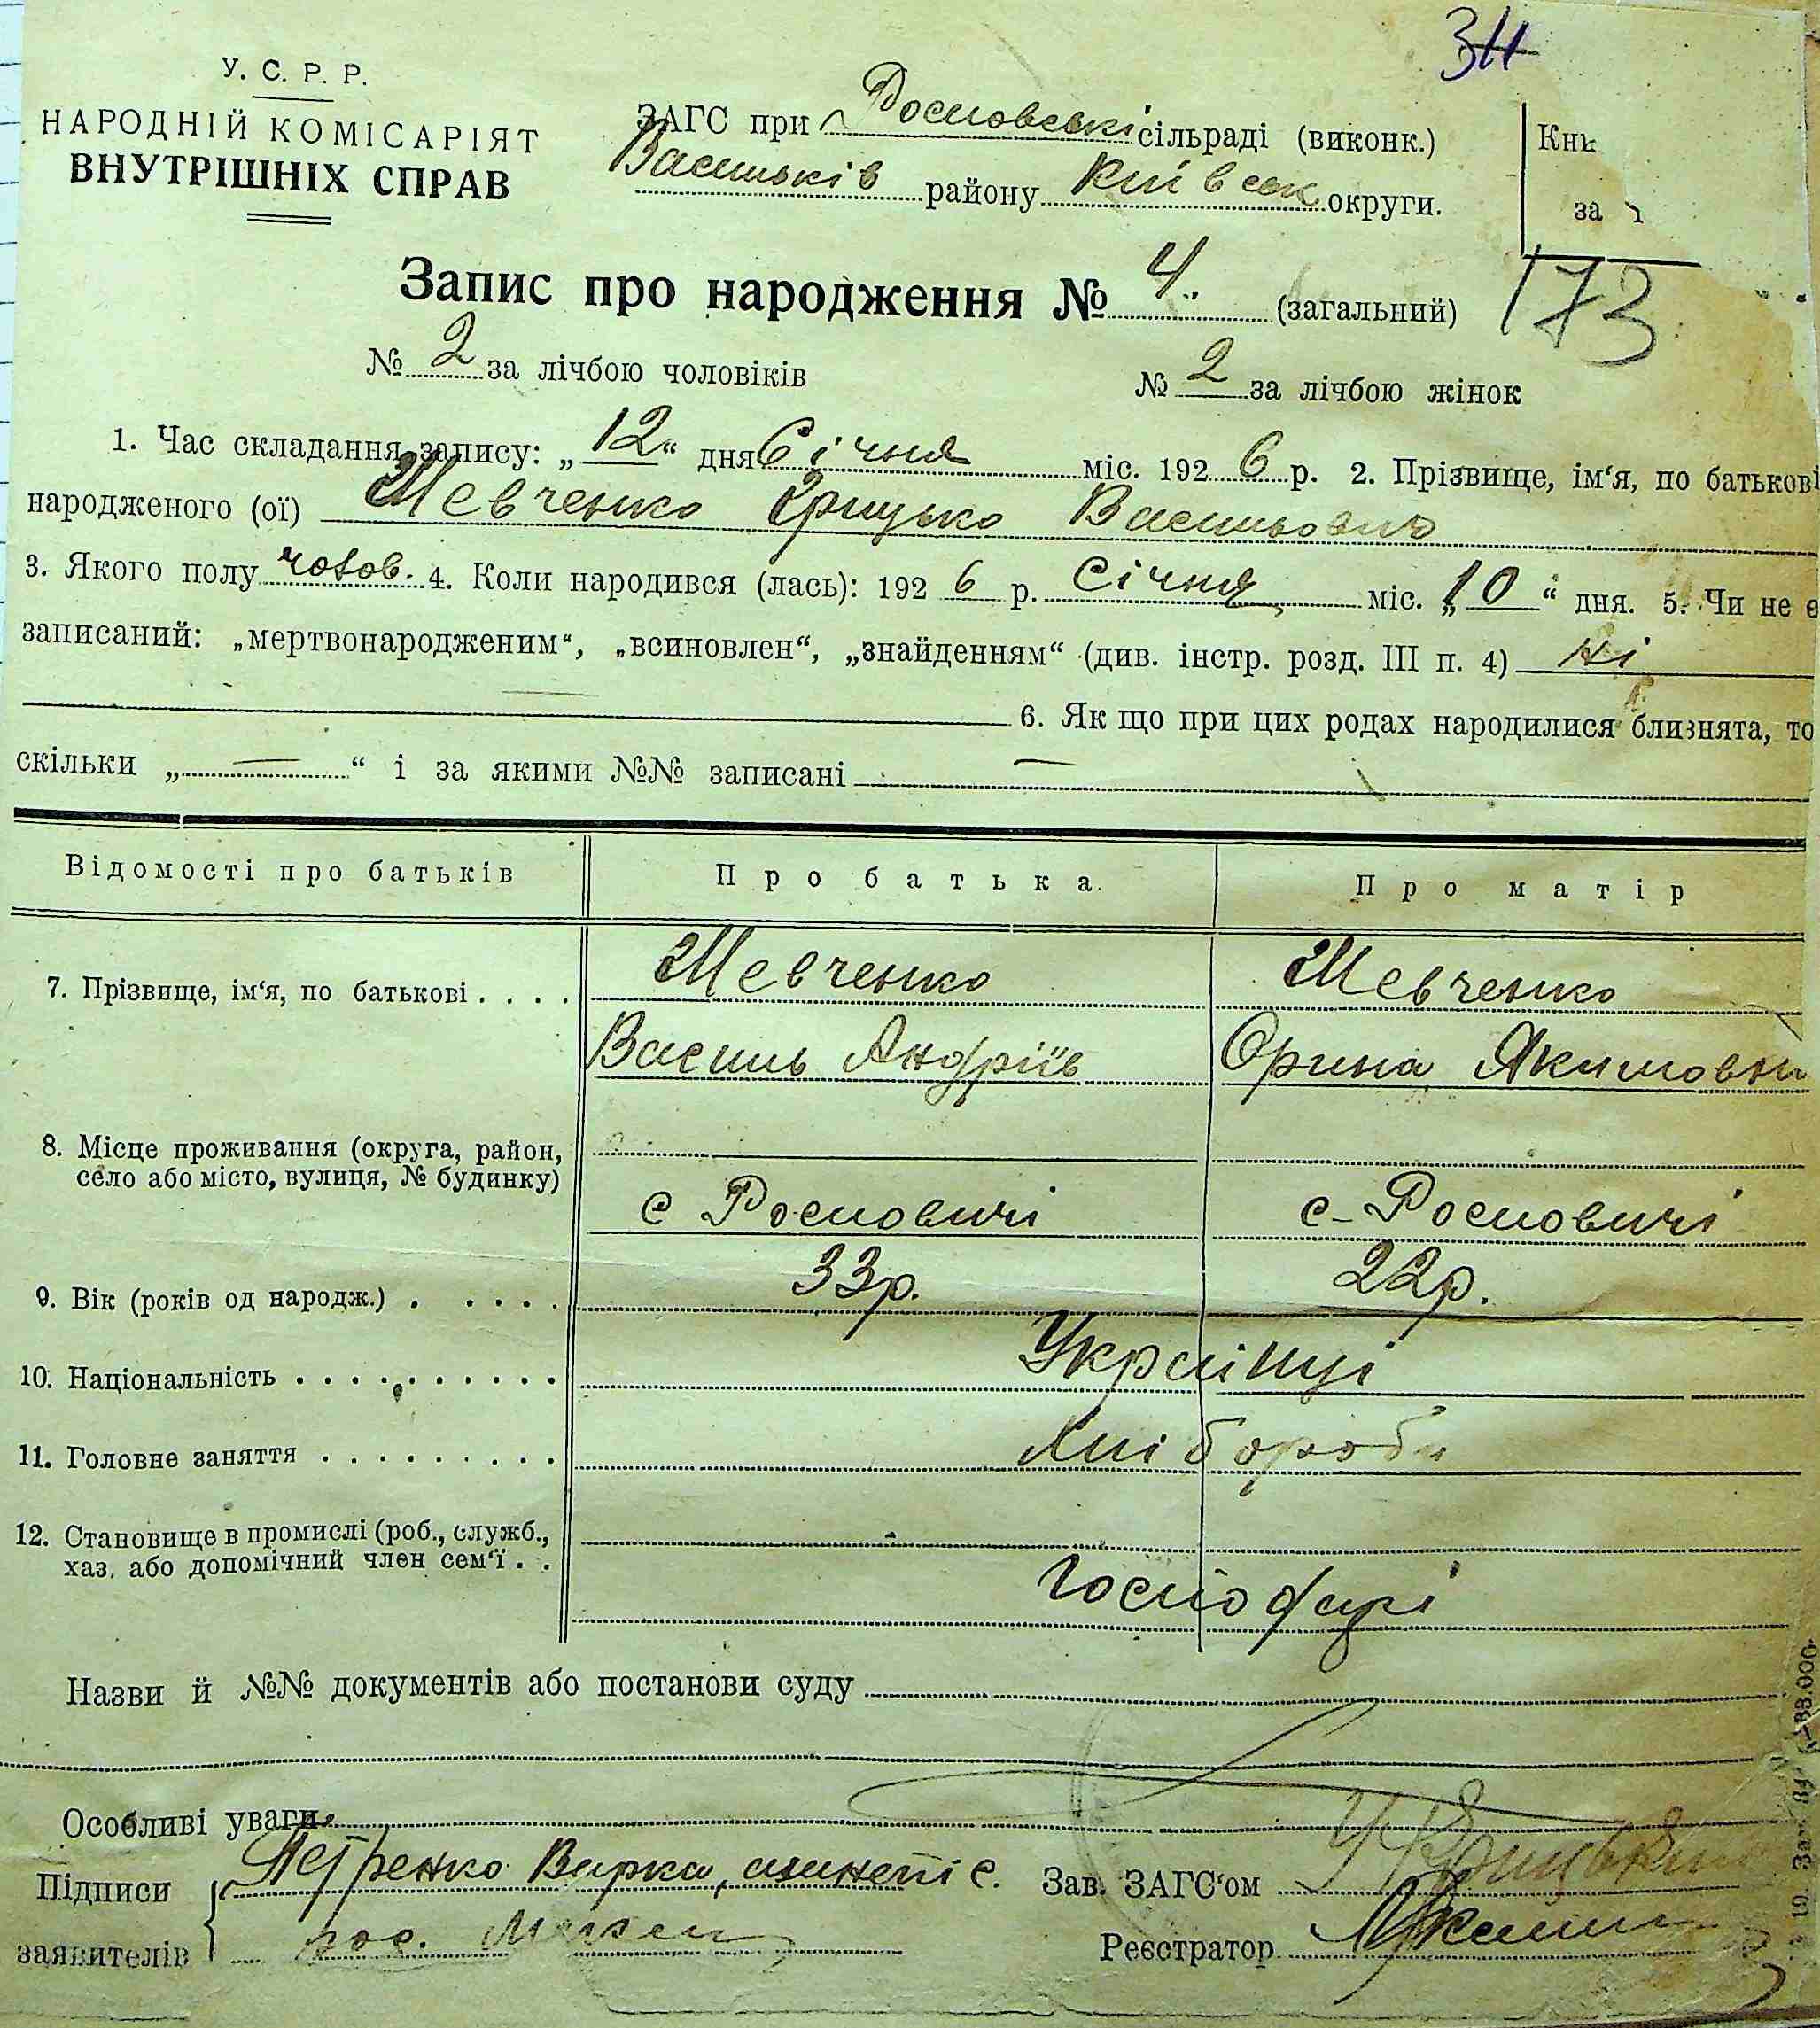 У. С. Р. Р.
НАРОДНІЙ КОМІСАРІЯТ
ВНУТРІШНІХ СПРАВ
ЗАГС при Росновські сільраді (виконк.)
Васильків району Київськ округи.
Кни
за
173
Запис про народження № 4. (загальний)
№ 2 за лічбою чоловіків № 2 за лічбою жінок
1. Час складання запису: „12“ дня Січня міс. 1926 р. 2. Прізвище, ім‘я, по батькові
народженого (ої) Шевченко Грицько Васильович
3. Якого полу чолов. 4. Коли народився (лась): 1926 р. Січня міс. „10“ дня. 5. Чи не є
записаний: „мертвонародженим“, „всиновлен“, „знайденням“ (див. інстр. розд. III п. 4) ні
6. Як що при цих родах народилися близнята, то
скільки „ — “ і за якими №№ записані —
Відомості про батьків Про батька. Про матір
7. Прізвище, ім‘я, по батькові . . . . Шевченко Шевченко
Василь Андріїв Орина Якимовна
8. Місце проживання (округа, район,
село або місто, вулиця, № будинку) с Росновичі с-Росновичі
9. Вік (років од народж.) . . . . . 33р. 22р.
10. Національність . . . . . . . . . . Українці
11. Головне заняття . . . . . . . . . Хліборобы
12. Становище в промислі (роб., служб.,
хаз. або допомічний член сем‘ї . . Господарі
Назви й №№ документів або постанови суду
Особливі уваги
Підписи Петренко Вирка,
заявителів
Зав. ЗАГС‘ом
Реєстратор